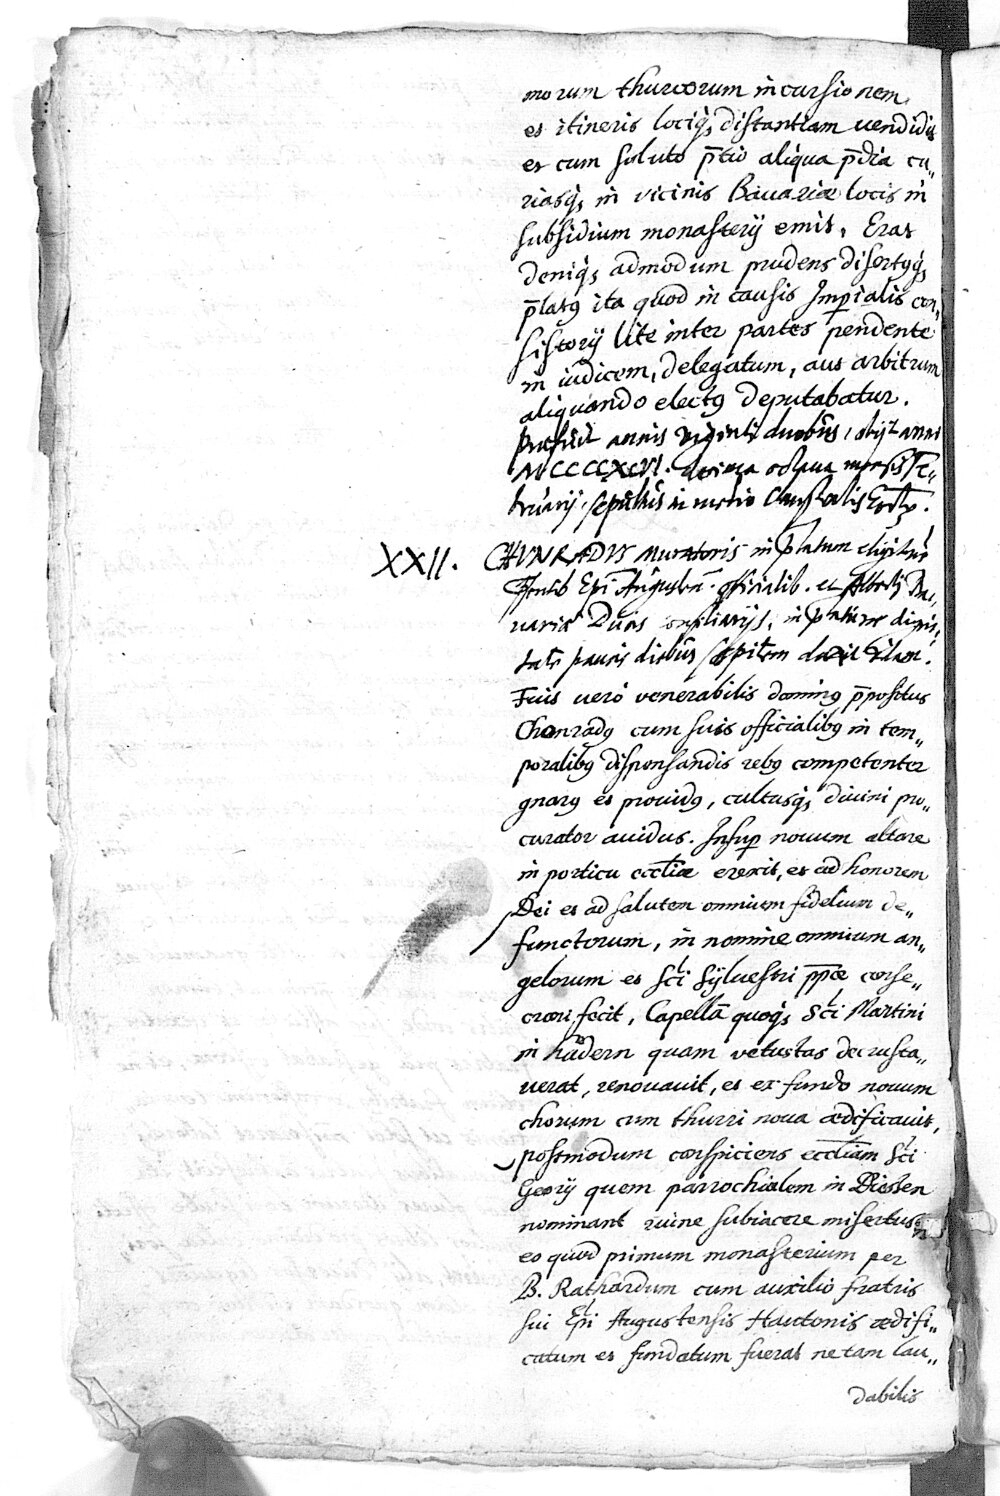 morum thurcorum incursionem
et itineris lociq₃ distantiam vendidit
et cum soluto p̄tio aliqua p̄dia cu„
riasq₃ in vicinis Bauariæ locis in
subsidium monasterij emit, Erat
deniq₃ admodum prudens disertq₃
p̄latꝰ ita quod in causis Imp̲ialis con„
sistorij lite inter partes pendente
in iudicem, delegatum, aut arbitrum
aliquando electꝰ deputabatur.
Praefuit annis viginti duobus, obijt anno
MCCCCXCVI. decima octava mensis Fe„
bruarij, sepultus in medio
XXII. CHVNRADVS Muratoris in p̄latum eligitur
Epī Augusten. officialib. et Alberti Ba„
uariæ Ducis consiliarijs, in p̄laturæ digni„
tate paucis diebus
Fuit vero venerabilis dominꝰ p̄positus
Chonradꝰ cum suis officialibꝰ in tem„
poralibꝰ disponsandis rebꝰ competenter
gnarꝰ et prouidꝰ, cultusq₃ diuini pro„
curator auidus. Insup̲ nouum altare
in porticu eccl̄iæ erexit, et ad honorem
Dei et ad salutem omnium fidelium de„
functorum, in nomine omnium an„
gelorum et Scti Syluestri pp̄æ conse„
crari fecit, Capellā quoq₃ Scti Martini
in hädern quam vetustas decrusta„
uerat, renouauit, et ex fundo nouum
chorum cum thurri noua ædificauit,
postmodum conspiciens eccl̄iam Scti
Georij quem parrochialem in Diessen
nominant ruine subiacere misertus
eo quod primum monasterium per
B. Rathardum cum auxilio fratris
sui Epi Augustensis Hautonis ædifi„
catum et fundatum fuerat ne tam lau„
dabilis